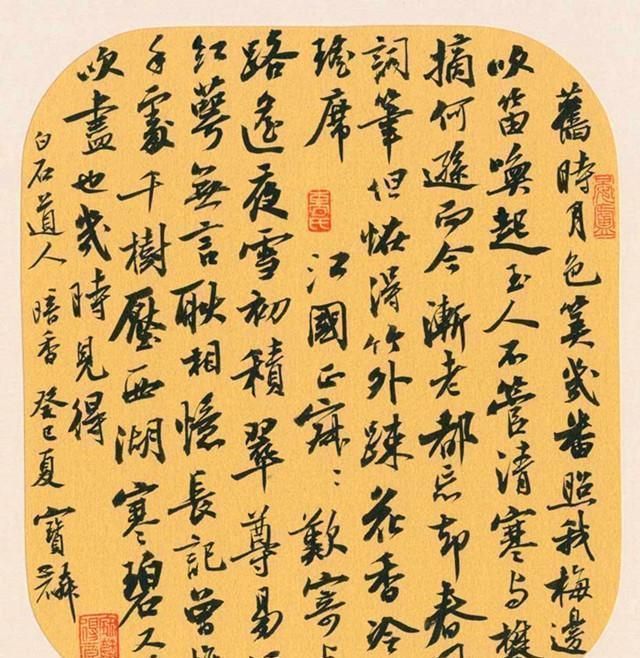 舊時月色算幾番照我梅邊
吹笛喚起玉人不管清寒与攀
摘何遜而今漸老都忘却春
詞筆但怪得竹外疎花香冷
瑤席 江國正寂〻歎寄与
路遙夜雪初積翠尊易
紅萼無言耿相憶長記曾攜
手處千樹壓西湖寒碧又
吹盡也幾時見得
白石道人 暗香 癸巳夏 寶麟